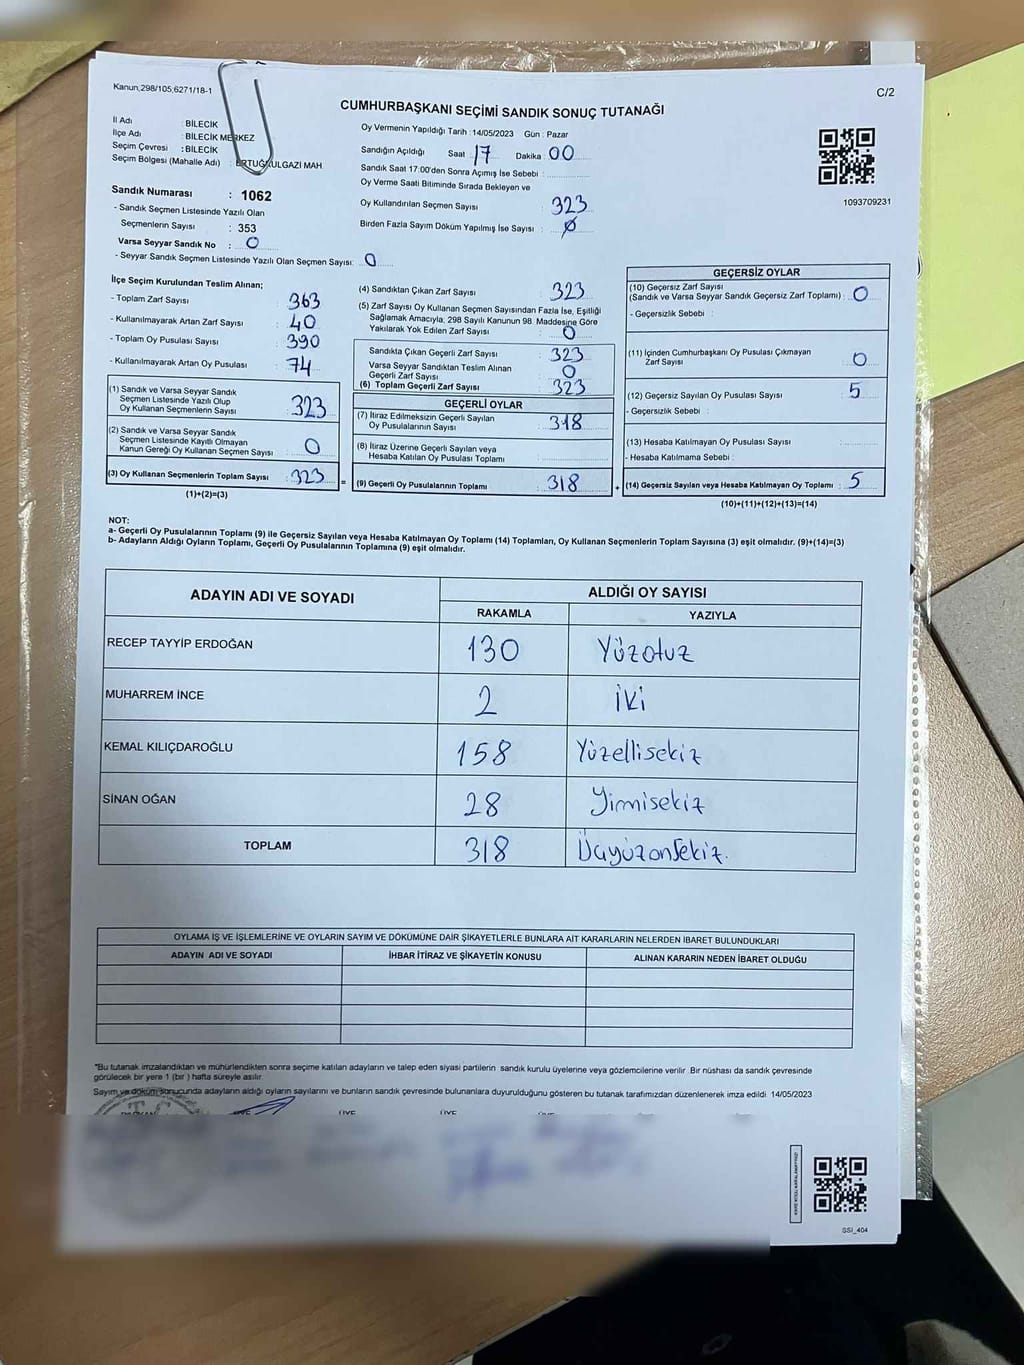 Kanun,298/105,6271/18-1
C/2
CUMHURBAŞKANI SEÇİMİ SANDIK SONUÇ TUTANAĞI
İl Adı : BİLECİK
İlçe Adı : BİLECİK MERKEZ
Seçim Çevresi : BİLECİK
Seçim Bölgesi (Mahalle Adı) : ERTUĞRULGAZİ MAH
Sandık Numarası : 1062
- Sandık Seçmen Listesinde Yazılı Olan
Seçmenlerin Sayısı : 353
Varsa Seyyar Sandık No : 0
- Seyyar Sandık Seçmen Listesinde Yazılı Olan Seçmen Sayısı: 0
Oy Vermenin Yapıldığı Tarih : 14/05/2023 Gün : Pazar
Sandığın Açıldığı Saat 17 Dakika 00
Sandık Saat 17:00'den Sonra Açımış İse Sebebi :
Oy Verme Saati Bitiminde Sırada Bekleyen ve
Oy Kullandırılan Seçmen Sayısı : 323
Birden Fazla Sayım Döküm Yapılmış İse Sayısı : Ø
1093709231
İlçe Seçim Kurulundan Teslim Alınan;
- Toplam Zarf Sayısı : 363
- Kullanılmayarak Artan Zarf Sayısı : 40
- Toplam Oy Pusulası Sayısı : 390
- Kullanılmayarak Artan Oy Pusulası : 74
(1) Sandık ve Varsa Seyyar Sandık
Seçmen Listesinde Yazılı Olup
Oy Kullanan Seçmenlerin Sayısı : 323
(2) Sandık ve Varsa Seyyar Sandık
Seçmen Listesinde Kayıtlı Olmayan
Kanun Gereği Oy Kullanan Seçmen Sayısı : 0
(3) Oy Kullanan Seçmenlerin Toplam Sayısı : 323 =
(1)+(2)=(3)
(4) Sandıktan Çıkan Zarf Sayısı : 323
(5) Zarf Sayısı Oy Kullanan Seçmen Sayısından Fazla İse, Eşitliği
Sağlamak Amacıyla, 298 Sayılı Kanunun 98. Maddesine Göre
Yakılarak Yok Edilen Zarf Sayısı : 0
Sandıkta Çıkan Geçerli Zarf Sayısı : 323
Varsa Seyyar Sandıktan Teslim Alınan
Geçerli Zarf Sayısı : 0
(6) Toplam Geçerli Zarf Sayısı : 323
GEÇERLİ OYLAR
(7) İtiraz Edilmeksizin Geçerli Sayılan
Oy Pusulalarının Sayısı : 318
(8) İtiraz Üzerine Geçerli Sayılan veya
Hesaba Katılan Oy Pusulası Toplamı :
(9) Geçerli Oy Pusulalarının Toplamı : 318 +
GEÇERSİZ OYLAR
(10) Geçersiz Zarf Sayısı
(Sandık ve Varsa Seyyar Sandık Geçersiz Zarf Toplamı) : 0
- Geçersizlik Sebebi :
(11) İçinden Cumhurbaşkanı Oy Pusulası Çıkmayan
Zarf Sayısı : 0
(12) Geçersiz Sayılan Oy Pusulası Sayısı : 5
- Geçersizlik Sebebi :
(13) Hesaba Katılmayan Oy Pusulası Sayısı :
- Hesaba Katılmama Sebebi :
(14) Geçersiz Sayılan veya Hesaba Katılmayan Oy Toplamı : 5
(10)+(11)+(12)+(13)=(14)
NOT:
a- Geçerli Oy Pusulalarının Toplamı (9) ile Geçersiz Sayılan veya Hesaba Katılmayan Oy Toplamı (14) Toplamları, Oy Kullanan Seçmenlerin Toplam Sayısına (3) eşit olmalıdır. (9)+(14)=(3)
b- Adayların Aldığı Oyların Toplamı, Geçerli Oy Pusulalarının Toplamına (9) eşit olmalıdır.
ADAYIN ADI VE SOYADI ALDIĞI OY SAYISI
RAKAMLA YAZIYLA
RECEP TAYYİP ERDOĞAN 130 Yüzotuz
MUHARREM İNCE 2 İki
KEMAL KILIÇDAROĞLU 158 Yüzellisekiz
SİNAN OĞAN 28 Yirmisekiz
TOPLAM 318 Üçyüzonsekiz.
OYLAMA İŞ VE İŞLEMLERİNE VE OYLARIN SAYIM VE DÖKÜMÜNE DAİR ŞİKAYETLERLE BUNLARA AİT KARARLARIN NELERDEN İBARET BULUNDUKLARI
ADAYIN ADI VE SOYADI İHBAR İTİRAZ VE ŞİKAYETİN KONUSU ALINAN KARARIN NEDEN İBARET OLDUĞU
"Bu tutanak imzalandıktan ve mühürlendikten sonra seçime katılan adayların ve talep eden siyasi partilerin sandık kurulu üyelerine veya gözlemcilerine verilir .Bir nüshası da sandık çevresinde
görülecek bir yere 1 (bir ) hafta süreyle asılır.
Sayım ve döküm sonucunda adayların aldığı oyların sayılarını ve bunların sandık çevresinde bulunanlara duyurulduğunu gösteren bu tutanak tarafımızdan düzenlenerek imza edildi 14/05/2023
BAŞKAN ÜYE ÜYE ÜYE ÜYE
SSI_404